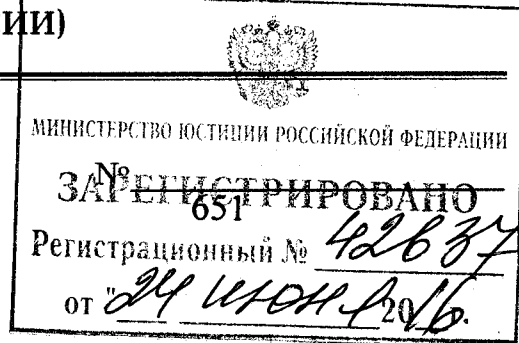 ИИ)
МИНИСТЕРСТВО ЮСТИЦИИ РОССИЙСКОЙ ФЕДЕРАЦИИ
№ 651
ЗАРЕГИСТРИРОВАНО
Регистрационный № 42637
от "24 июня 2016.